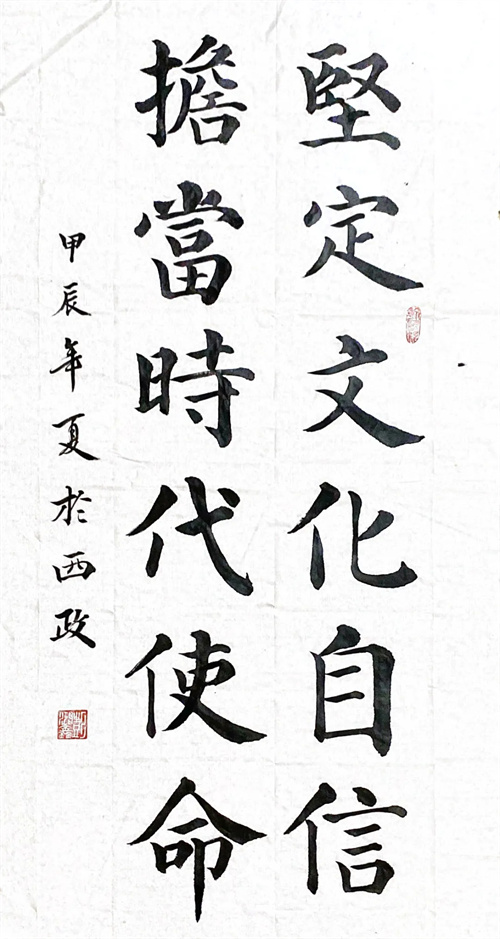 堅定文化自信
擔當時代使命
甲辰年夏於西政